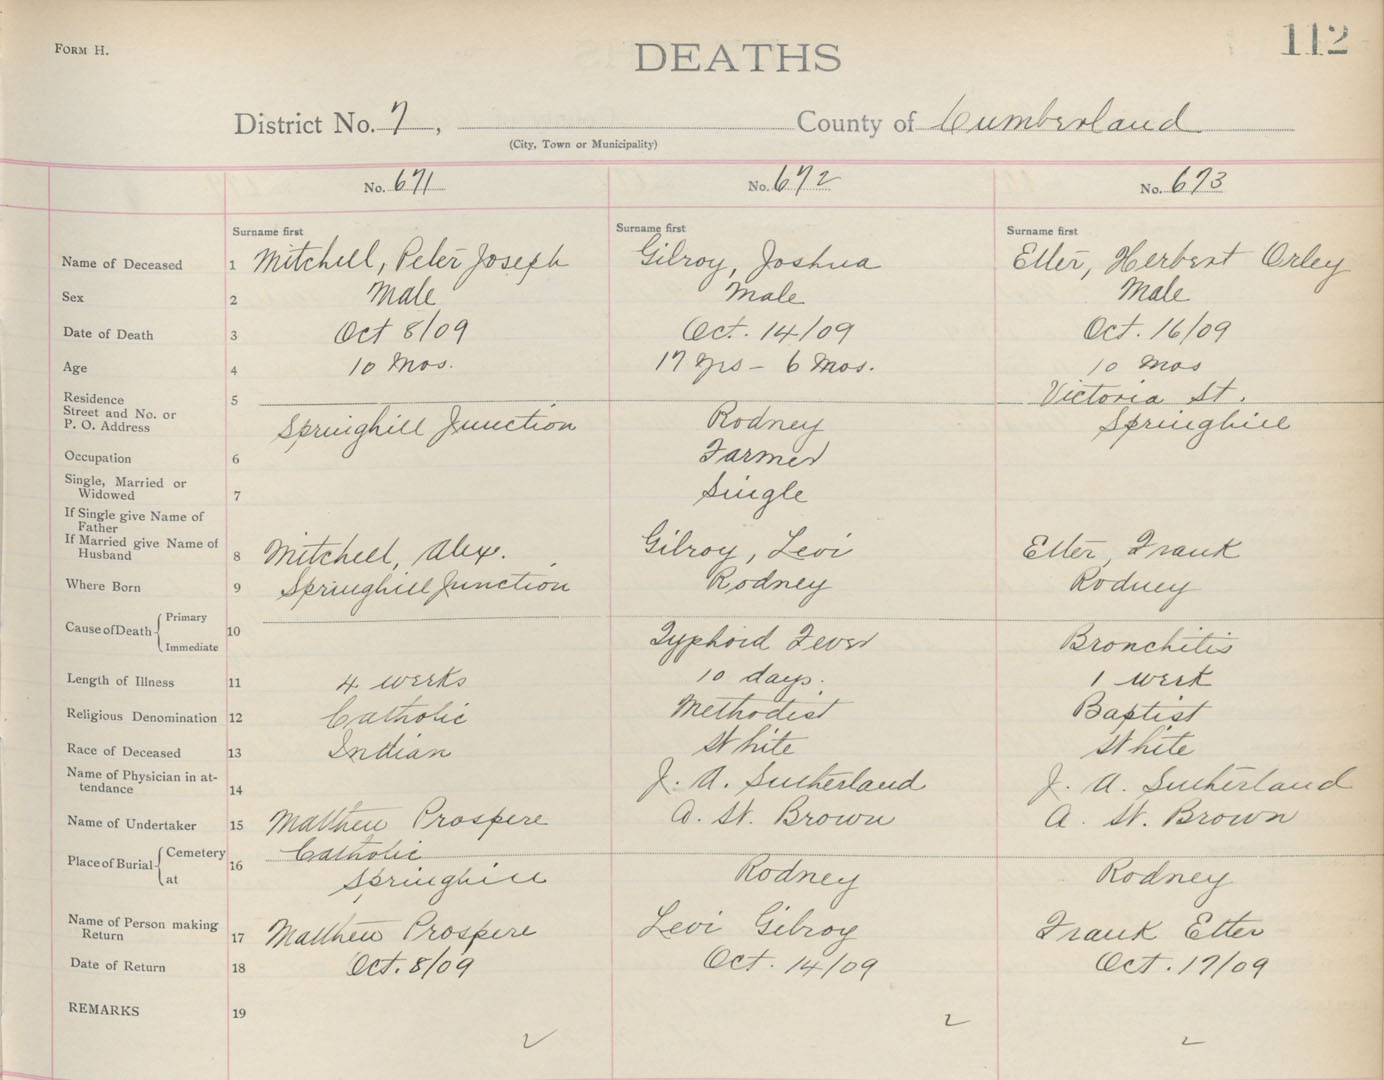 FORM H.
DEATHS
112
District No. 7, County of Cumberland
(City, Town or Municipality)
No. 671 No. 672 No. 673
Surname first Surname first Surname first
Name of Deceased 1 Mitchell, Peter Joseph Gilroy, Joshua Etter, Herbert Orley
Sex 2 Male Male Male
Date of Death 3 Oct 8/09 Oct. 14/09 Oct. 16/09
Age 4 10 Mos. 17 yrs - 6 Mos. 10 mos
Residence 5 Victoria St.
Street and No. or
P. O. Address Springhill Junction Rodney Springhill
Occupation 6 Farmer
Single, Married or
Widowed 7 Single
If Single give Name of
Father
If Married give Name of
Husband 8 Mitchell, Alex. Gilroy, Levi Etter, Frank
Where Born 9 Springhill Junction Rodney Rodney
Cause of Death Primary 10
Immediate Typhoid Fever Bronchitis
Length of Illness 11 4 weeks 10 days. 1 week
Religious Denomination 12 Catholic Methodist Baptist
Race of Deceased 13 Indian White White
Name of Physician in at-
tendance 14 J. A. Sutherland J. A. Sutherland
Name of Undertaker 15 Matthew Prospere A. W. Brown A. W. Brown
Place of Burial Cemetery 16 Catholic
at Springhill Rodney Rodney
Name of Person making
Return 17 Matthew Prospere Levi Gilroy Frank Etter
Date of Return 18 Oct. 8/09 Oct. 14/09 Oct. 17/09
REMARKS 19